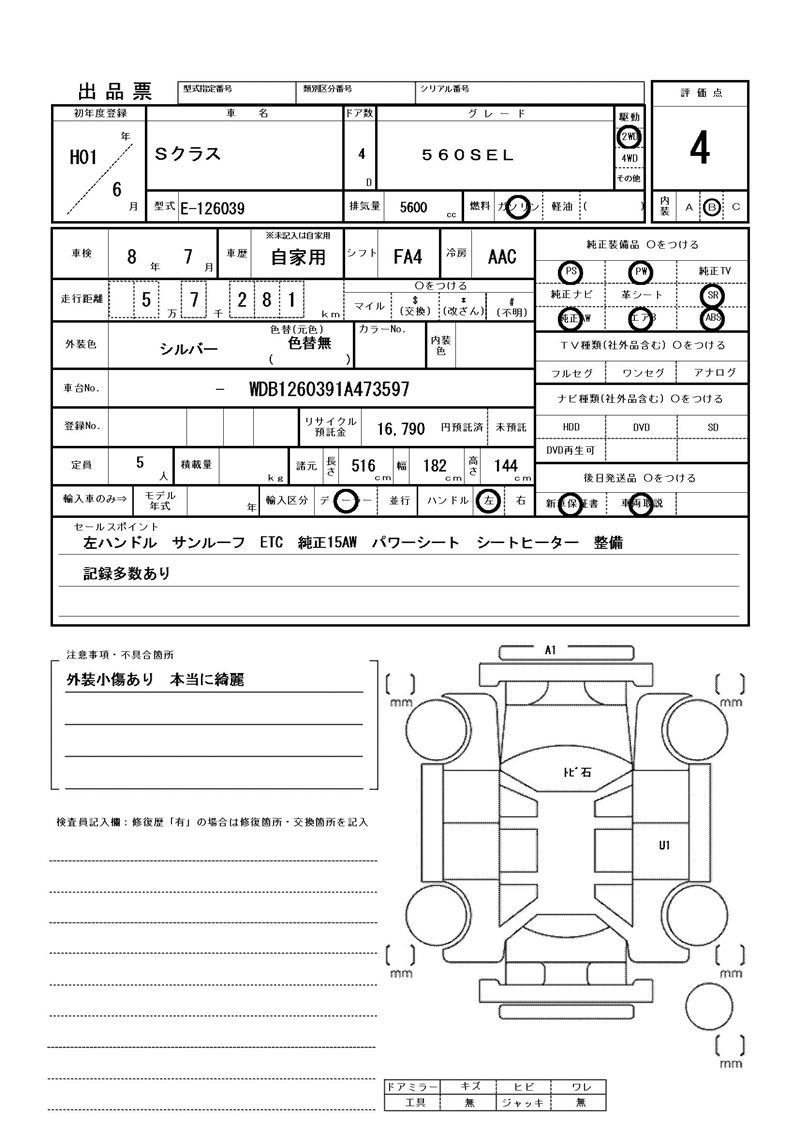 出品票
型式指定番号 類別区分番号 シリアル番号
初年度登録 車 名 ドア数 グレード 駆動 評価点
H01 年 6 月 Sクラス 4 D 560SEL 2WD 4WD その他 4
型式 E-126039 排気量 5600 cc 燃料 ガソリン 軽油 ( ) 内装 A B C
車検 8 年 7 月 車歴 ※未記入は自家用 自家用 シフト FA4 冷房 AAC
走行距離 5 万 7 千 2 8 1 km 〇をつける
マイル $ (交換) * (改ざん) # (不明)
外装色 シルバー 色替(元色) 色替無 ( ) カラーNo. 内装色
車台No. － WDB1260391A473597
登録No. リサイクル預託金 16,790 円預託済 未預託
定員 5 人 積載量 kg 諸元 長さ 516 cm 幅 182 cm 高さ 144 cm
輸入車のみ⇒ モデル年式 年 輸入区分 ディーラー 並行 ハンドル 左 右
純正装備品 〇をつける
PS PW 純正TV
純正ナビ 革シート SR
純正AW エアB ABS
TV種類(社外品含む) 〇をつける
フルセグ ワンセグ アナログ
ナビ種類(社外品含む) 〇をつける
HDD DVD SD
DVD再生可
後日発送品 〇をつける
新車保証書 車両取説
セールスポイント
左ハンドル サンルーフ ETC 純正15AW パワーシート シートヒーター 整備
記録多数あり
注意事項・不具合箇所
外装小傷あり 本当に綺麗
検査員記入欄：修復歴「有」の場合は修復箇所・交換箇所を記入
A1
mm mm
ﾄﾋﾞ石
U1
mm mm
mm
ドアミラー キズ ヒビ ワレ
工具 無 ジャッキ 無